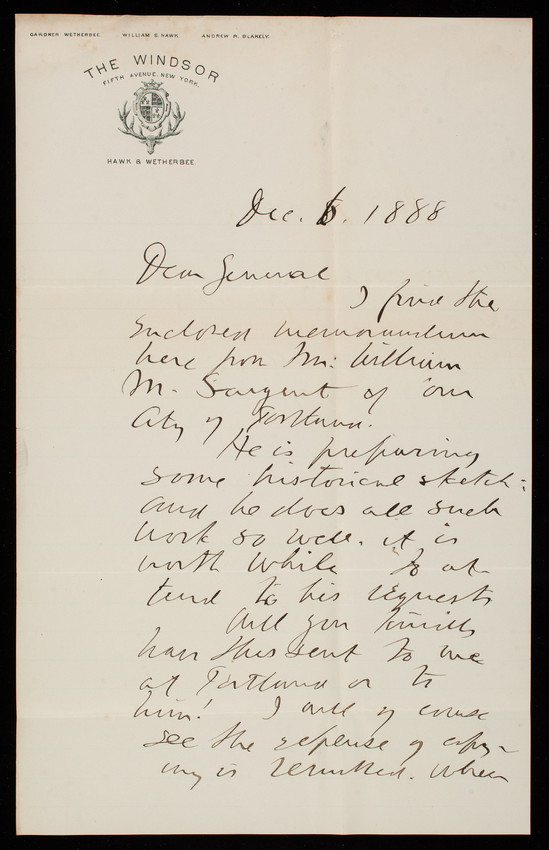 GARDNER WETHERBEE. WILLIAM S. HAWK. ANDREW M. BLAKELY.
THE WINDSOR
FIFTH AVENUE, NEW YORK.
HAWK & WETHERBEE
Dec. 6. 1888
Dear General
I find the
enclosed memorandum
here from Mr: William
M. Sargent of our
City of Portland.
He is preparing
some historical sketch:
and he does all such
work so well. it is
worth while to at-
tend to his requests
Will you kindly
have this sent to me
at Portland or to
him! I will of course
see the expense of copy-
ing is remitted. when